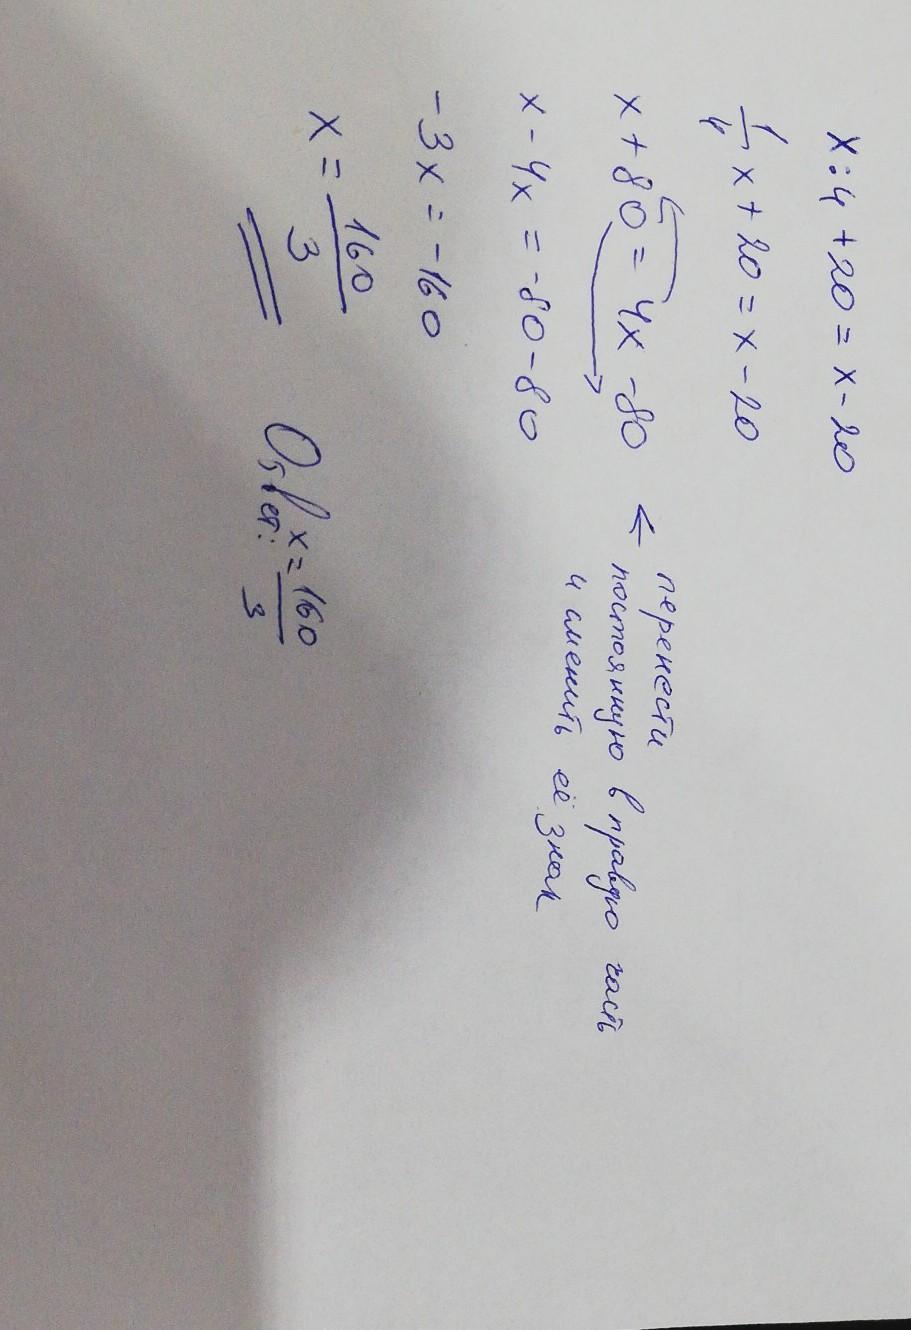 x:4 + 20 = x - 20
1/4 x + 20 = x - 20
x + 80 = 4x - 80 ← перенести
постоянную в правую часть
и сменить её знак
x - 4x = -80 - 80
-3x = -160
x = 160/3
Ответ: x = 160/3